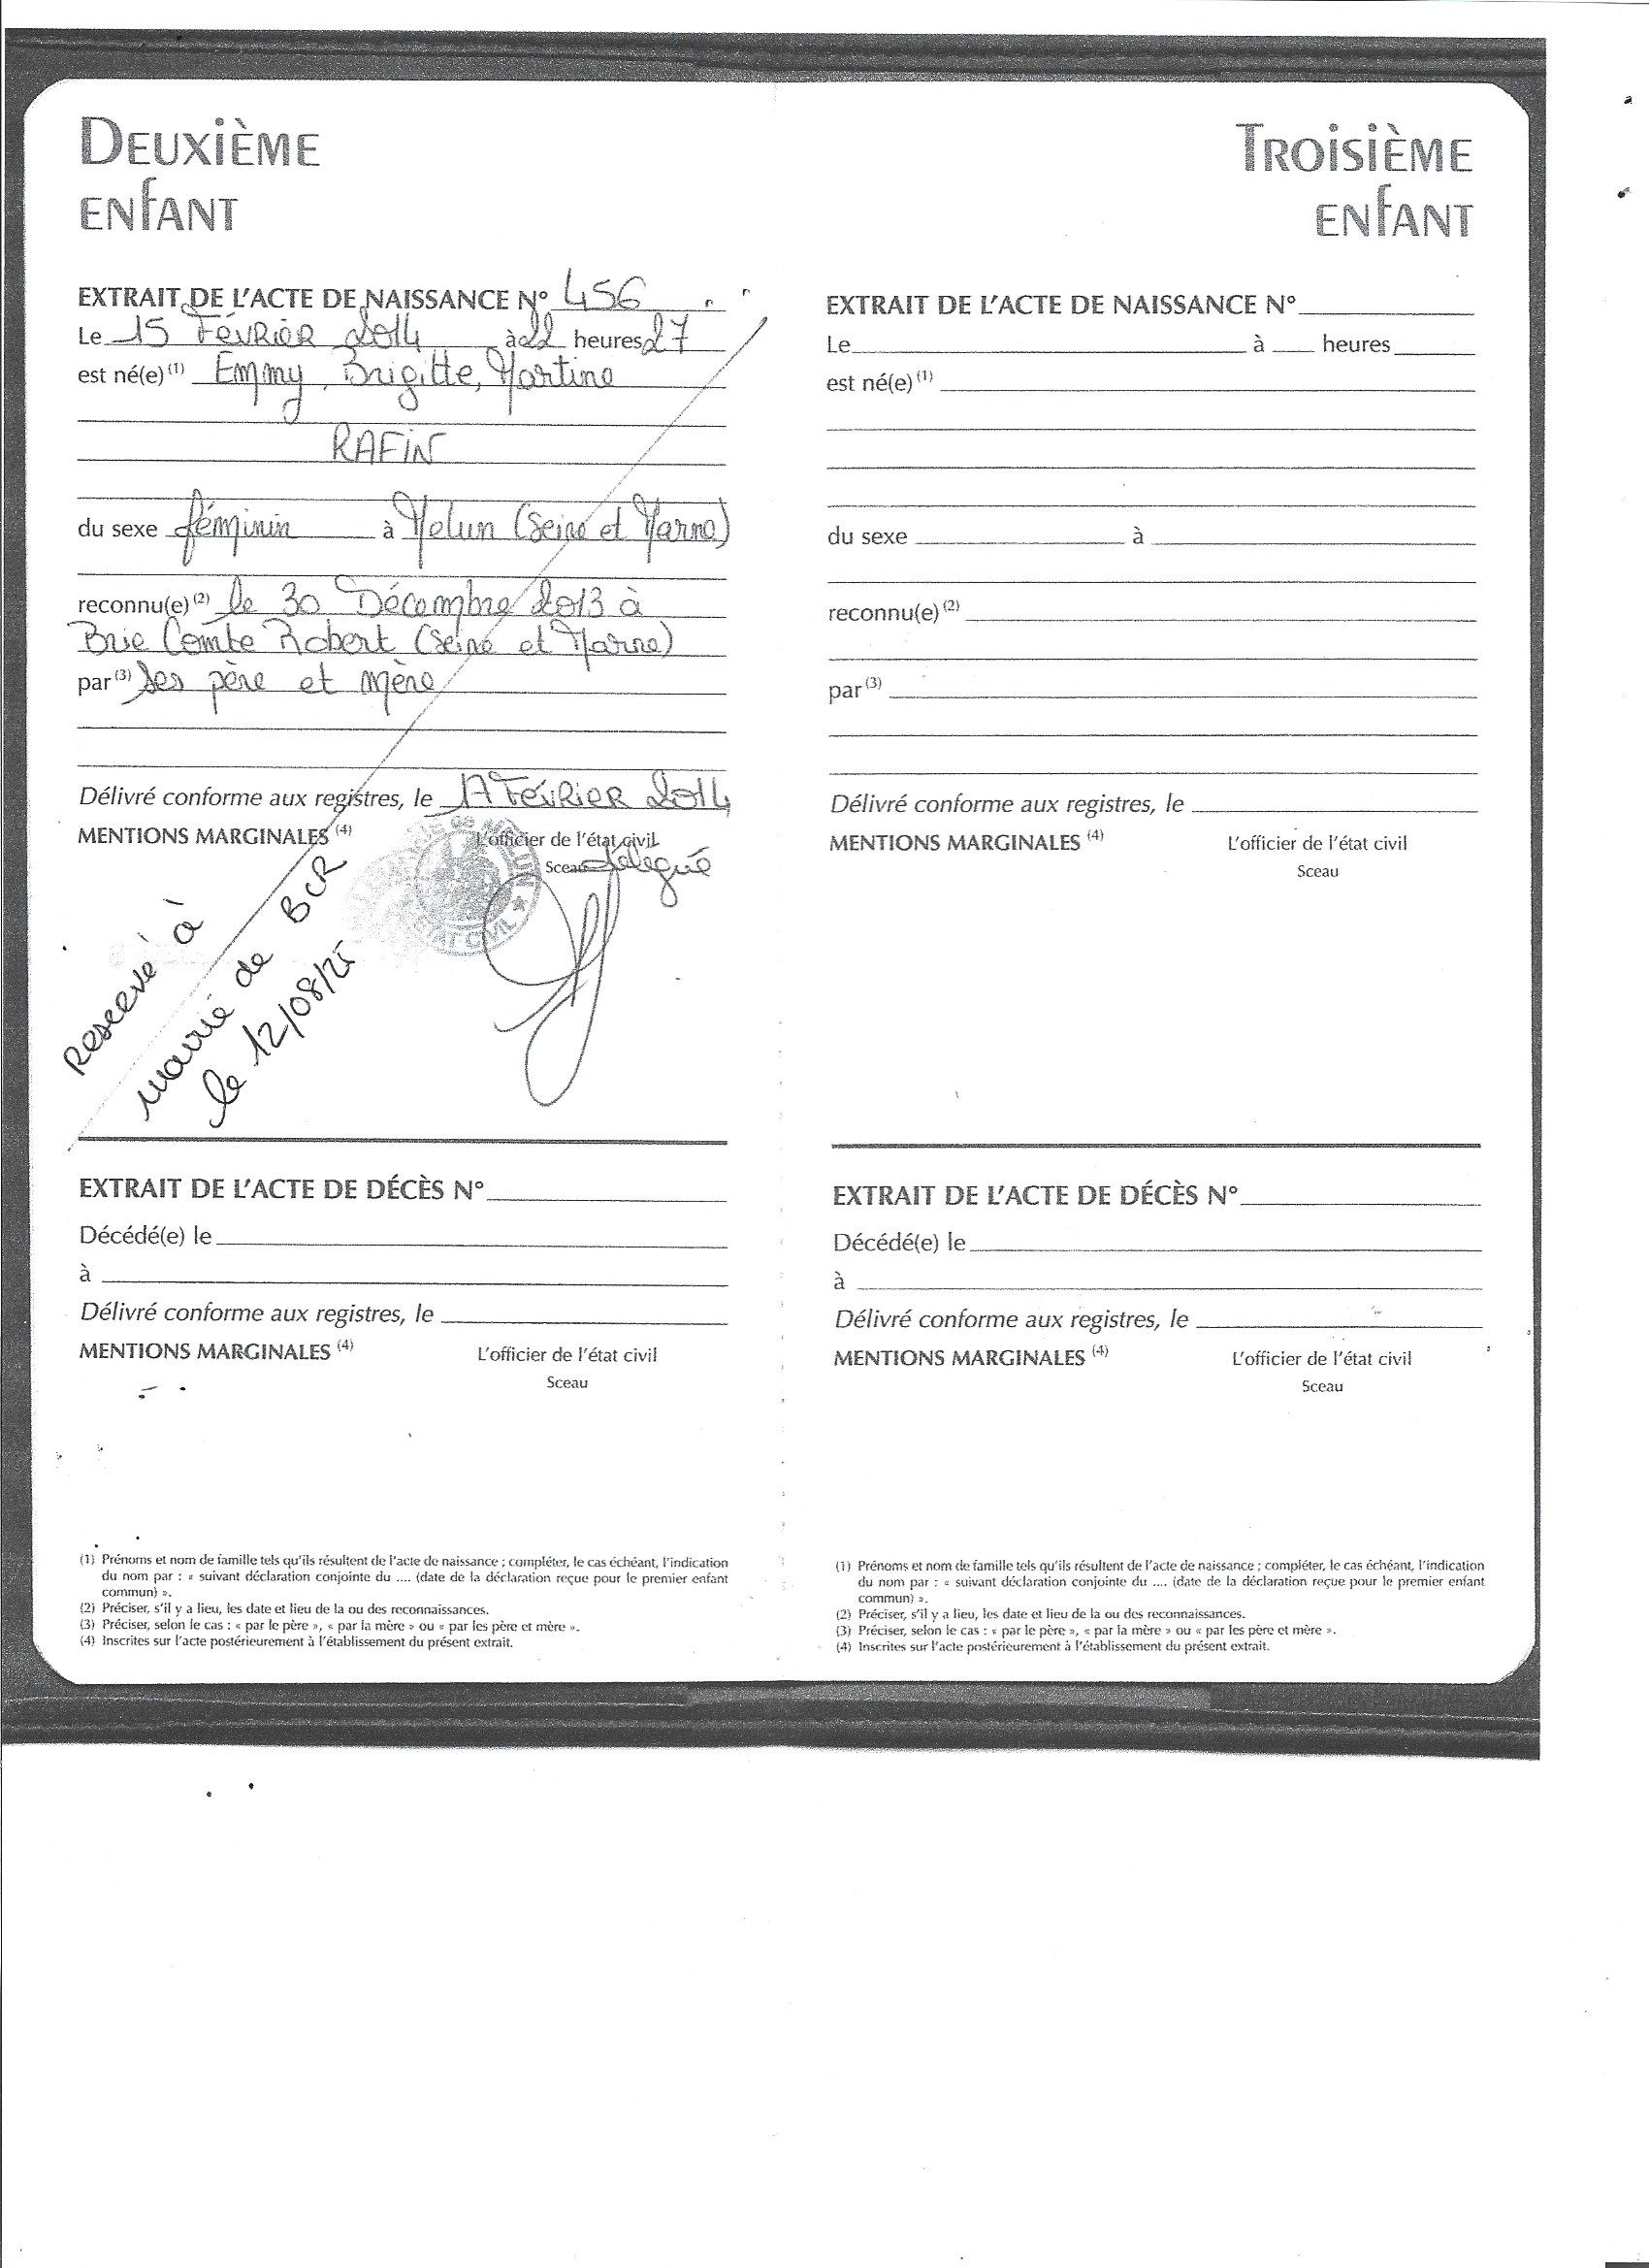 DEUXIÈME
ENFANT
EXTRAIT DE L'ACTE DE NAISSANCE N° 456
Le 15 FÉVRIER 2014 à 22 heures 27
est né(e) (1) Emmy, Brigitte, Martine
RAFIN
du sexe féminin à Melun (Seine et Marne)
reconnu(e) (2) le 30 Décembre 2013 à
Brie Comte Robert (Seine et Marne)
par (3) ses père et mère
Délivré conforme aux registres, le 17 FÉVRIER 2014
MENTIONS MARGINALES (4) L'officier de l'état civil
Sceau délégué
ETAT CIVIL
Reservé à
mairie de BCR
le 12/08/25
EXTRAIT DE L'ACTE DE DÉCÈS N°
Décédé(e) le
à
Délivré conforme aux registres, le
MENTIONS MARGINALES (4) L'officier de l'état civil
Sceau
(1) Prénoms et nom de famille tels qu'ils résultent de l'acte de naissance ; compléter, le cas échéant, l'indication
du nom par : « suivant déclaration conjointe du .... (date de la déclaration reçue pour le premier enfant
commun) ».
(2) Préciser, s'il y a lieu, les date et lieu de la ou des reconnaissances.
(3) Préciser, selon le cas : « par le père », « par la mère » ou « par les père et mère ».
(4) Inscrites sur l'acte postérieurement à l'établissement du présent extrait.
TROISIÈME
ENFANT
EXTRAIT DE L'ACTE DE NAISSANCE N°
Le à heures
est né(e) (1)
du sexe à
reconnu(e) (2)
par (3)
Délivré conforme aux registres, le
MENTIONS MARGINALES (4) L'officier de l'état civil
Sceau
EXTRAIT DE L'ACTE DE DÉCÈS N°
Décédé(e) le
à
Délivré conforme aux registres, le
MENTIONS MARGINALES (4) L'officier de l'état civil
Sceau
(1) Prénoms et nom de famille tels qu'ils résultent de l'acte de naissance ; compléter, le cas échéant, l'indication
du nom par : « suivant déclaration conjointe du .... (date de la déclaration reçue pour le premier enfant
commun) ».
(2) Préciser, s'il y a lieu, les date et lieu de la ou des reconnaissances.
(3) Préciser, selon le cas : « par le père », « par la mère » ou « par les père et mère ».
(4) Inscrites sur l'acte postérieurement à l'établissement du présent extrait.